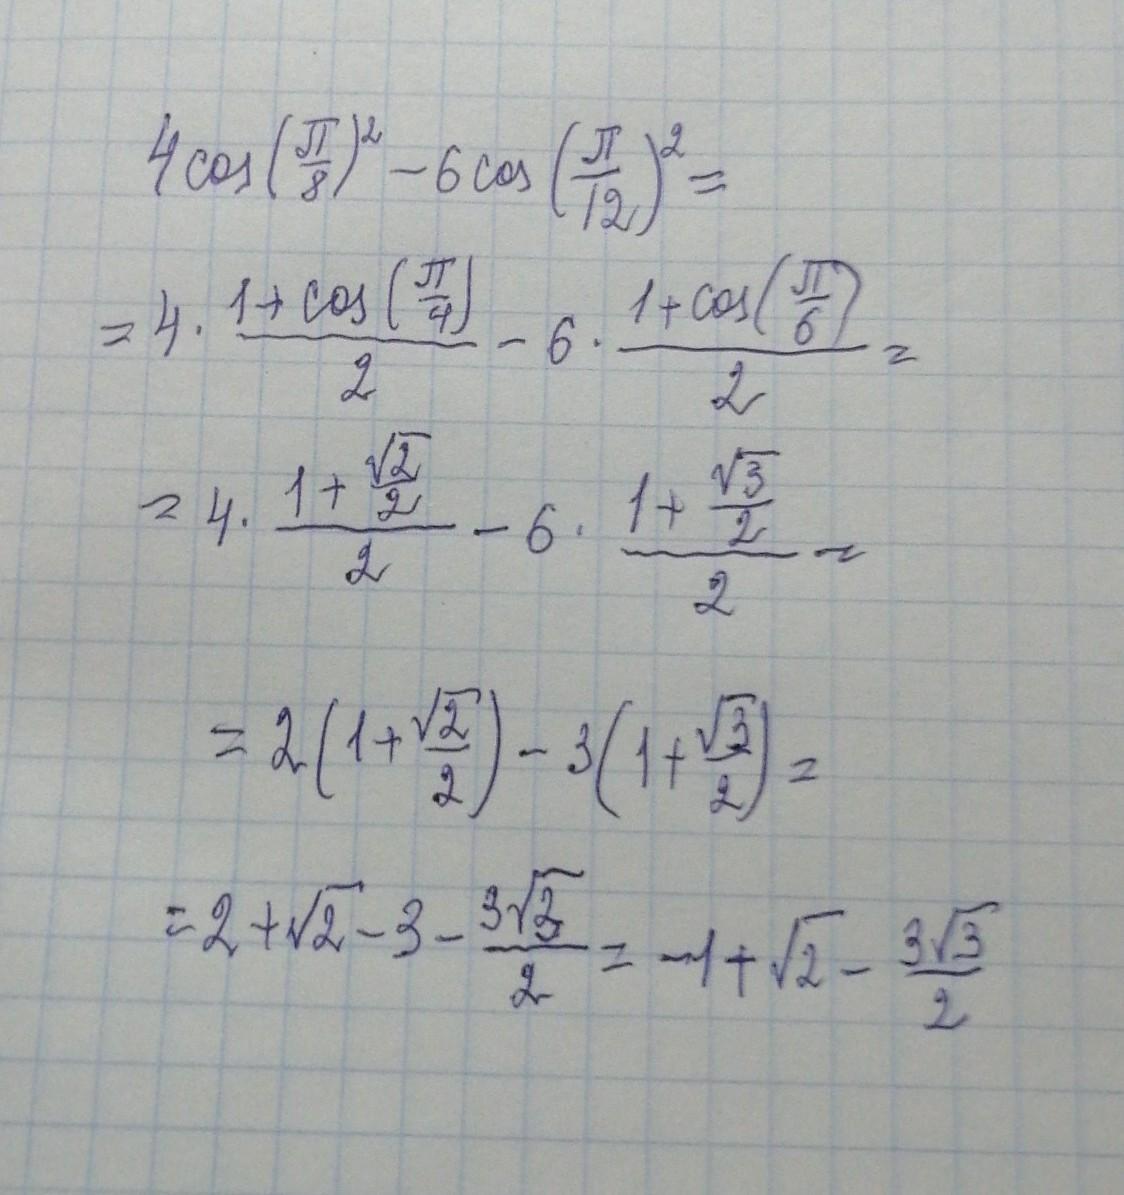 4cos(π/8)² − 6cos(π/12)² =
= 4 · (1+cos(π/4))/2 − 6 · (1+cos(π/6))/2 =
= 4 · (1+√2/2)/2 − 6 · (1+√3/2)/2 =
= 2(1+√2/2) − 3(1+√3/2) =
= 2+√2−3−3√3/2 = −1+√2−3√3/2